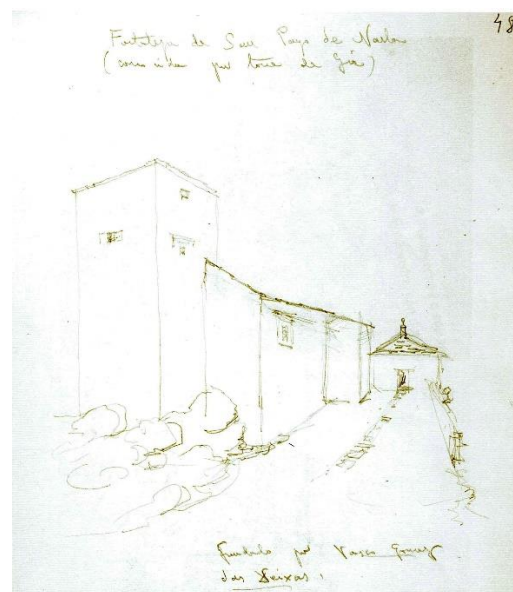 48
Fortaleza de San Payo de Narla
(conocida por torre de Giá)
fundada por Vasco Gomez
das Seixas.